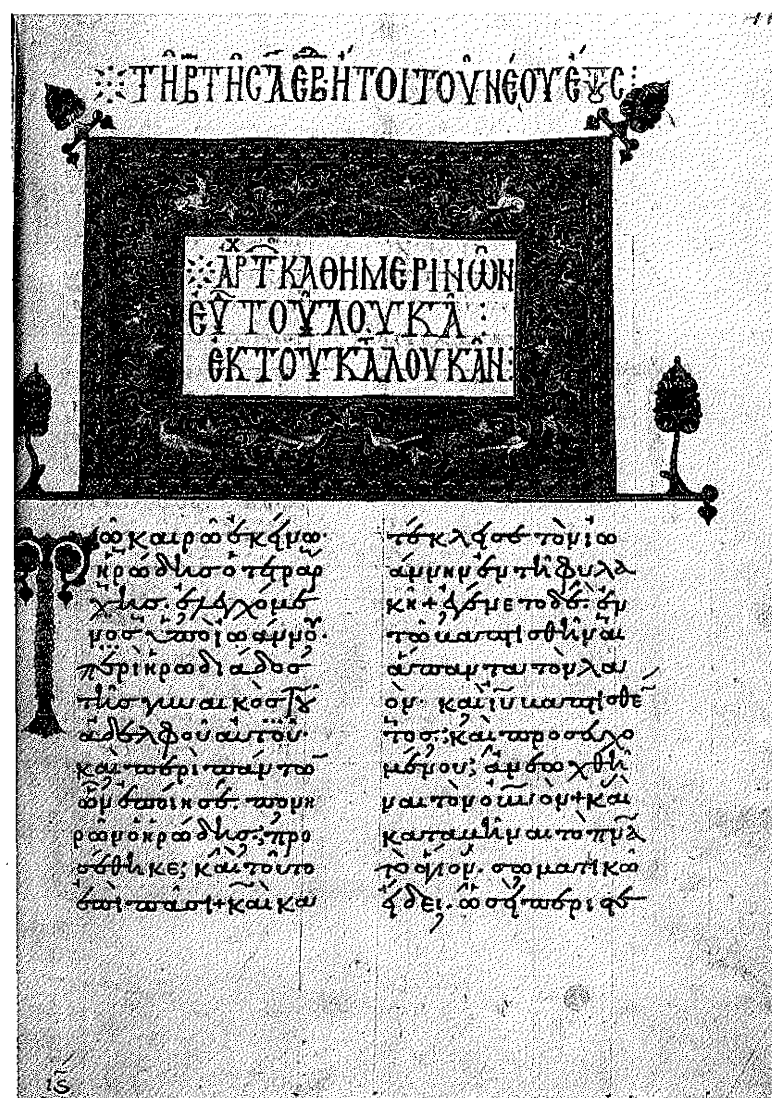 ΤΗ Β ΤΗϹ Α ΕΒ ΗΤΟΙ ΤΟΥ ΝΕΟΥ ΕΤΟΥϹ:
ἈΡΧ Τ ΚΑΘΗΜΕΡΙΝῶΝ
ΕΥ ΤΟΥ ΛΟΥΚΑ:
ἐΚ ΤΟΥ ΚΑ ΛΟΥΚΑΝ:
Τῶ καιρῶ ἐκείνω·
ἡρώδης ὁ τετραρ
χης· ἐλεγχόμε
νος ὑπὸ ἰωάννου·
περὶ ἡρωδιάδος
τῆς γυναικὸς τοῦ
ἀδελφοῦ αὐτοῦ·
καὶ περὶ πάντω̅
ὧν ἐποίησε πονη
ρῶν ὁ ἡρώδης; προ
σέθηκε; καὶ τοῦτο
ἐπὶ πᾶσι+ καὶ κα
τέκλεισε τὸν ἰω
άννην ἐν τῆ φυλα
κῆ+ ἐγένετο δὲ· ἐν
τῶ βαπτισθῆναι
ἅπαντα τὸν λα
όν· καὶ ἰυ βαπτισθέ̅
τος; καὶ προσευχο
μένου; ἀνεωχθῆ
ναι τὸν οὐνον+ καὶ
καταβῆναι τὸ πνα
τὸ ἅγιον· σωματικῶ
εἴδει· ὡσεὶ περιστε
ιϛ